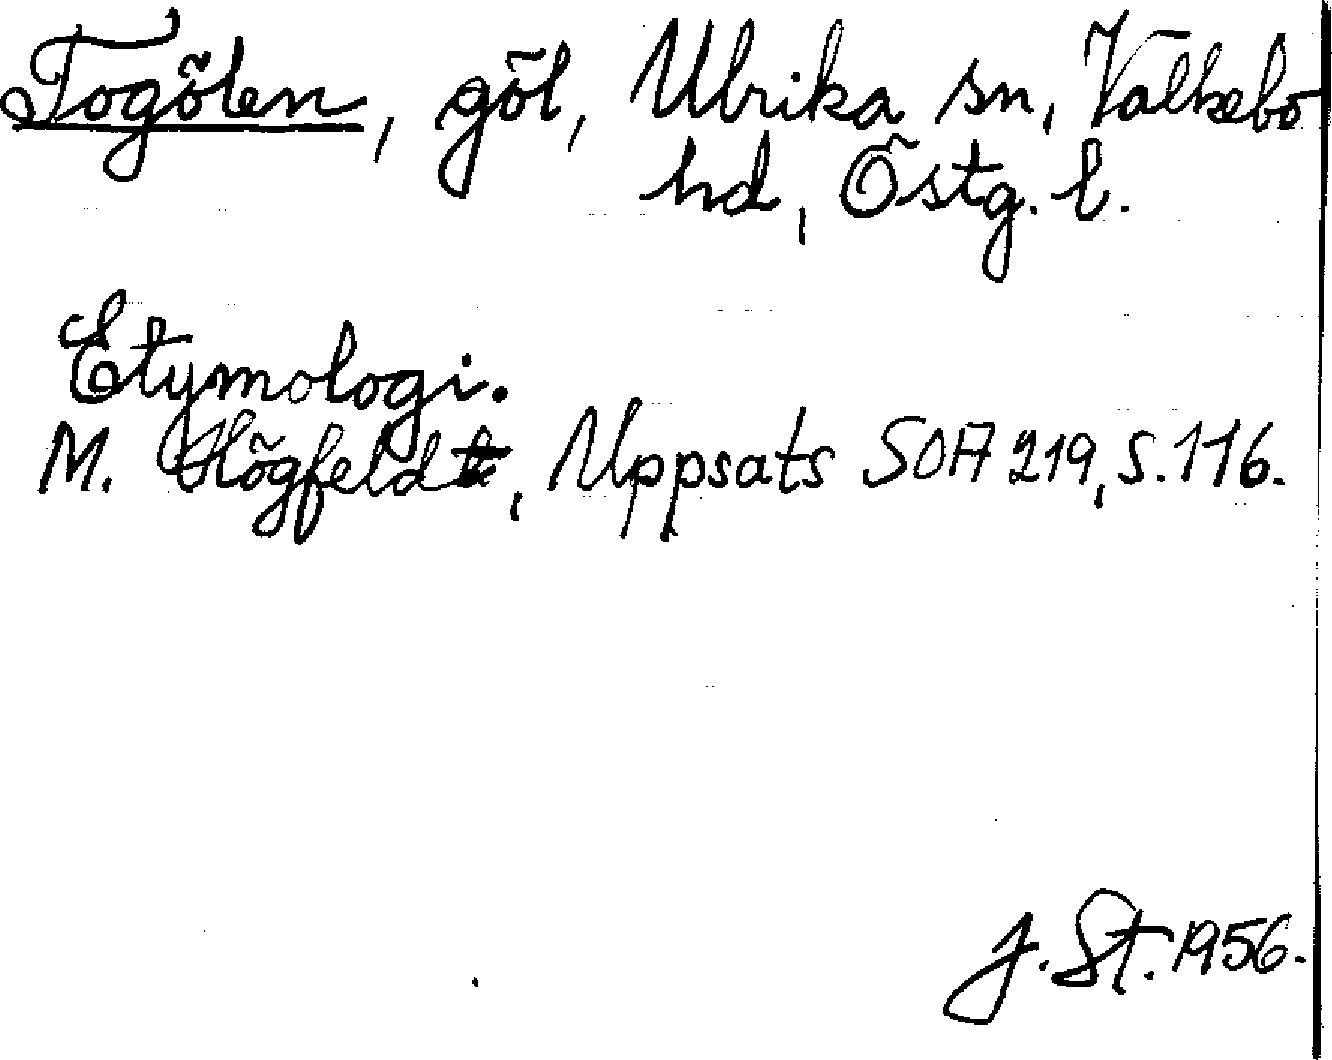 Togölen, göl, Ulrika sn, Valkebo
hd, Östg. l.
Etymologi.
M. Högfeldt, Uppsats SOA 219, s. 116.
J. St. 1956.